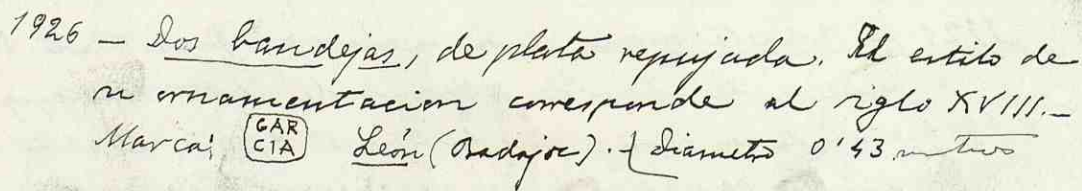 1926 — Dos bandejas, de plata repujada. El estilo de
su ornamentacion corresponde al siglo XVIII.—
Marca: GAR CIA León (Badajoz). — Diametro 0'43 metros